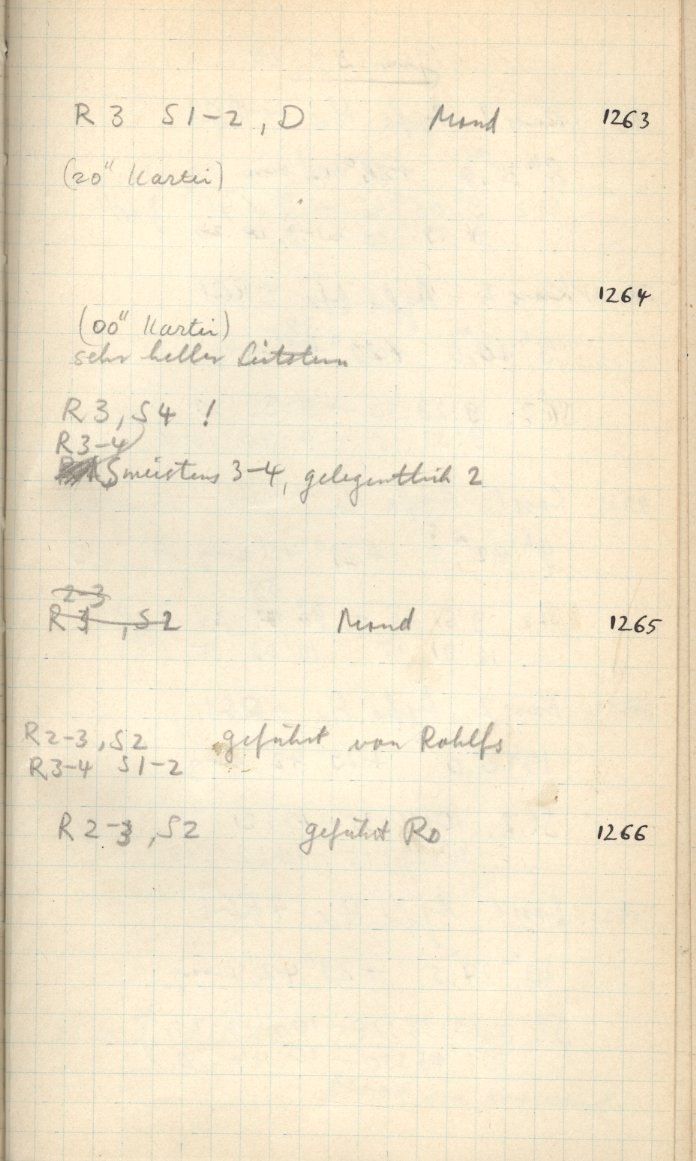 R 3 S1-2, D Mond 1263
(20" Kartei)
1264
(00" Kartei)
sehr heller Leitstern
R 3, S4 !
R3-4
S meistens 3-4, gelegentlich 2
2-3
R 3, S2 Mond 1265
R2-3, S2 geführt von Rohlfs
R3-4 S1-2
R 2-3, S2 geführt Ro 1266